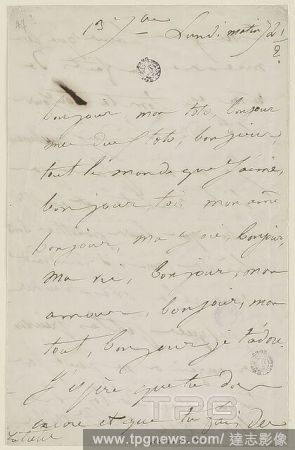 13 7bre Lundi matin
Bonjour mon toto, bonjour
mes toto, bonjour
tout le monde que j'aime,
bonjour toi, mon âme
bonjour, ma joie, bonjour,
ma vie, bonjour, mon
amour, bonjour, mon
tout, bonjour je t'adore.
J'espère que tu
encore et que tu fais des
TPG
www.tpgnews.com/達志影像